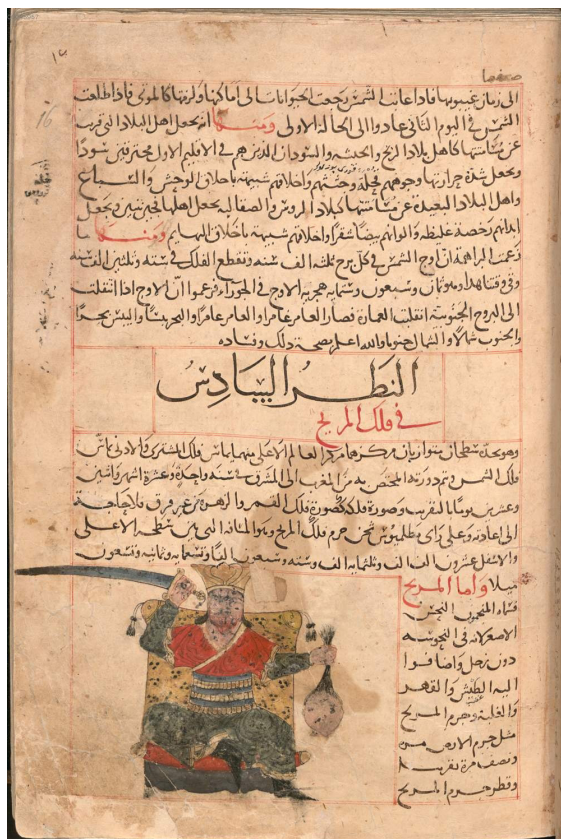 الى زمان غيبوبتها فاذا غابت الشمس رجعت الحيوانات الى اماكنها ولزمتها كالموتى فاذا طلعت
الشمس فى اليوم الثانى عادوا الى الحالة الاولى ومنها انه يجعل اهل البلاد التى قربت
عن مسامتتها كاهل بلاد الزنج والحبشه والسودان الذين هم فى الاقليم الاول محترقين سودا
ويجعل شدة حرارتها وجوههم قحلة وجثثهم واخلاقهم شبيهة باخلاق الوحش والسباع
واهل البلاد البعيدة عن مسامتتها كبلاد الروس والصقالبه يجعل اهلها نيين ويجعل
ابدانهم رخصة غليظه والوانهم بيضا شقرا واخلاقهم شبيهة باخلاق البهايم ومنها ما
زعمت البراهمة ان اوج الشمس فى كل برج ثلثه الف سنه وتقطع الفلك فى سته وثلثين الف سنه
وفى وقتنا هذا وهو ثمان وسبعون وستمايه هجريه الاوج فى الجوزاء فزعموا ان الاوج اذا انتقلت
الى البروج الجنوبية انقلبت العمارة فصار العامر غامرا والغامر عامرا والبحر يبسا واليبس بحرا
والجنوب شمالا والشمال جنوبا والله اعلم بصحة ذلك وفساده
النظر السادس
فى فلك المريخ
وهو يحده سطحان متوازيان مركزهما مركز العالم الاعلى منهما يماس فلك المشترى والادنى يماس
فلك الشمس وتتم دورته المختص به من المغرب الى المشرق فى سنه واحدة وعشرة اشهر واثنين
وعشرين يوما بالتقريب وصورة فلكه كصورة فلك القمر والزهرة من غير فرق فلا حاجة
الى اعادته وعلى راى بطلميوس ثخن جرم فلك المريخ وهو المسافة التى بين سطحه الاعلى
والاسفل عشرون الف الف وثلثمايه الف وسته وسبعون الفا وتسعمايه وثمانيه وتسعون
ميلا واما المريخ
فسماه المنجمون النحس
الاصغر لانه فى النحوسه
دون زحل واضافوا
اليه الطيش والقهر
والغلبة وجرم المريخ
مثل جرم الارض مره
ونصف مرة تقريبا
وقطر جرم المريخ